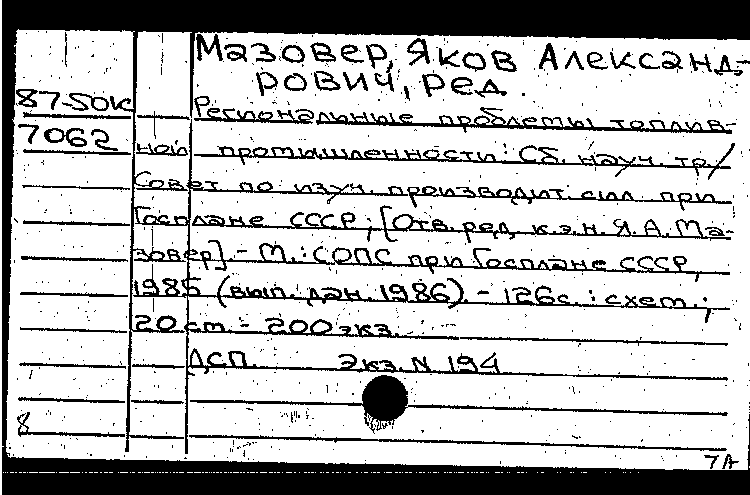 Мазовер, Яков Александ-
рович, ред.
87-50к Региональные проблемы топлив-
7062 ной промышленности: Сб. науч. тр/
Совет по изуч. производит. сил при
Госплане СССР; [Отв. ред. к.э.н. Я.А. Ма-
зовер]. - М.: СОПС при Госплане СССР,
1985 (вып. дан. 1986). - 126с.: схем.;
20 см. - 200 экз.
ДСП. Экз. N 194
8
7А